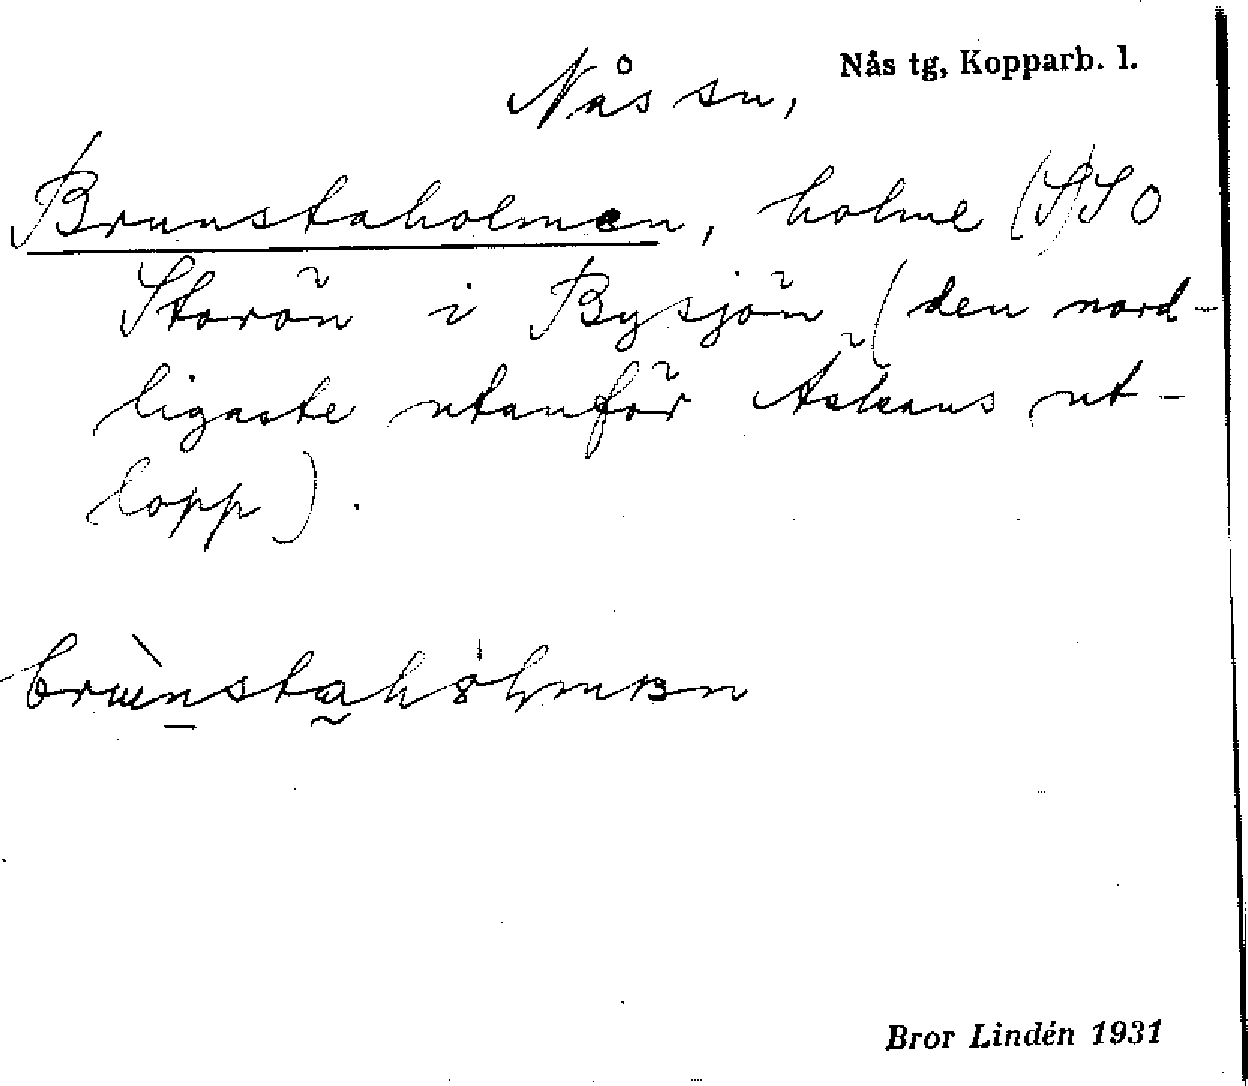 Nås tg, Kopparb. l.
Nås sn,
Brunstaholmen, holme (S)SO
Storön i Bysjön (den nord-
ligaste utanför Åskans ut-
lopp).
Bror Lindén 1931